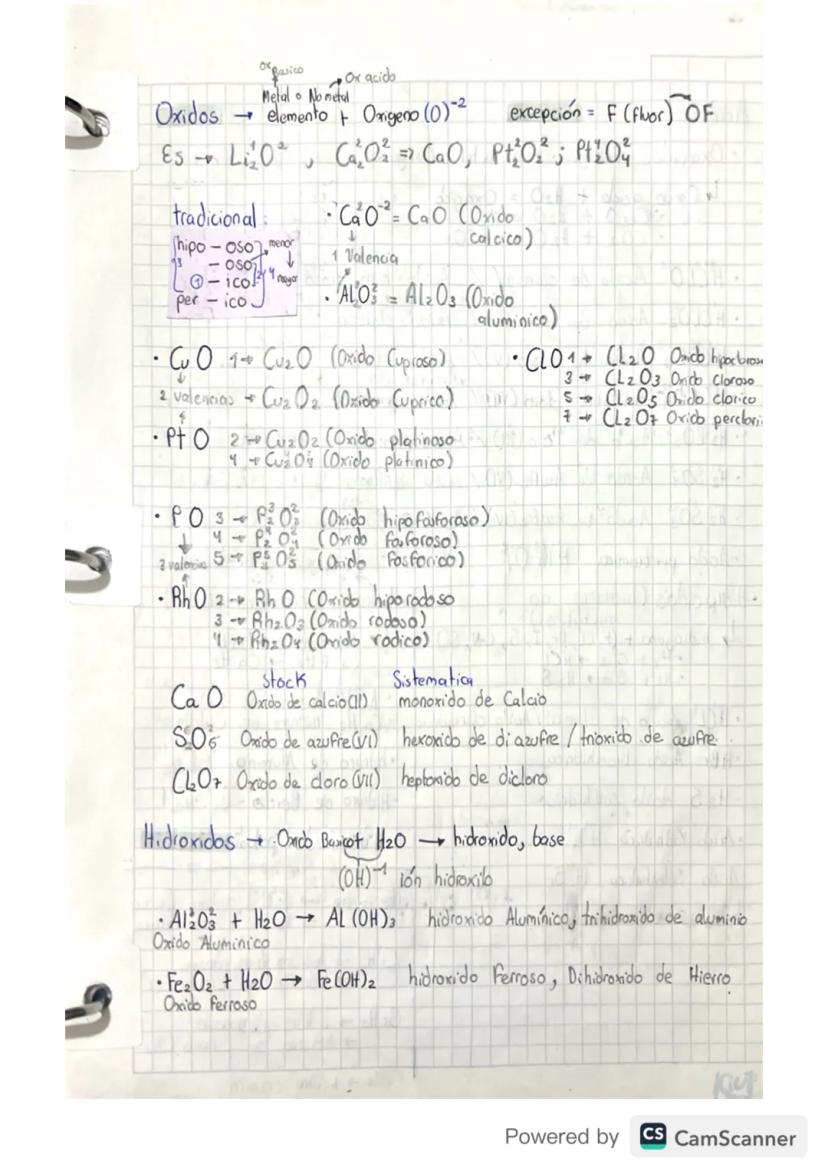 Ox basico
Ox acido
Metal o No metal
Oxidos → elemento + Oxigeno (O)⁻² excepción = F (fluor) OF
Es → Li₂¹O², Ca₂²O₂² ⇒ CaO, Pt₂²O₂²; Pt₂⁴O₄²
tradicional:
hipo - oso
- oso
① - ico
per - ico
3
2
4
menor
↓
mayor
· Ca²O⁻² = CaO (Oxido calcico)
↓
1 Valencia
· Al³O₃² = Al₂O₃ (Oxido aluminico)
· CuO 1 → Cu₂O (Oxido Cuproso)
2 valencias → Cu₂O₂ (Oxido Cuprico)
· PtO 2 → Cu₂O₂ (Oxido platinoso
4 → Cu₂⁴O₄² (Oxido platinico)
· ClO 1 → CL₂O Oxido hipocloroso
3 → CL₂O₃ Oxido Cloroso
5 → CL₂O₅ Oxido clorico
7 → CL₂O₇ Oxido perclori
· PO 3 → P₂³O₃² (Oxido hipofosforoso)
4 → P₂⁴O₄² (Oxido fosforoso)
3 valencia 5 → P₂⁵O₅² (Oxido Fosforico)
· RhO 2 → RhO (Oxido hiporodoso
3 → Rh₂O₃ (Oxido rodoso)
4 → Rh₂O₄ (Oxido rodico)
Stock Sistematica
CaO Oxido de calcio(II) monoxido de Calcio
S₂O₆² Oxido de azufre(VI) hexoxido de diazufre / trioxido de azufre
CL₂O₇ Oxido de cloro (VII) heptoxido de dicloro
Hidroxidos → Oxido Basico + H₂O → hidroxido, base
(OH)⁻¹ ión hidroxilo
· Al₂³O₃² + H₂O → AL(OH)₃ hidroxido Alumínico, trihidroxido de aluminio
Oxido Aluminico
· Fe₂O₂ + H₂O → Fe(OH)₂ hidroxido Ferroso, Dihidroxido de Hierro
Oxido ferroso
Powered by CS CamScanner